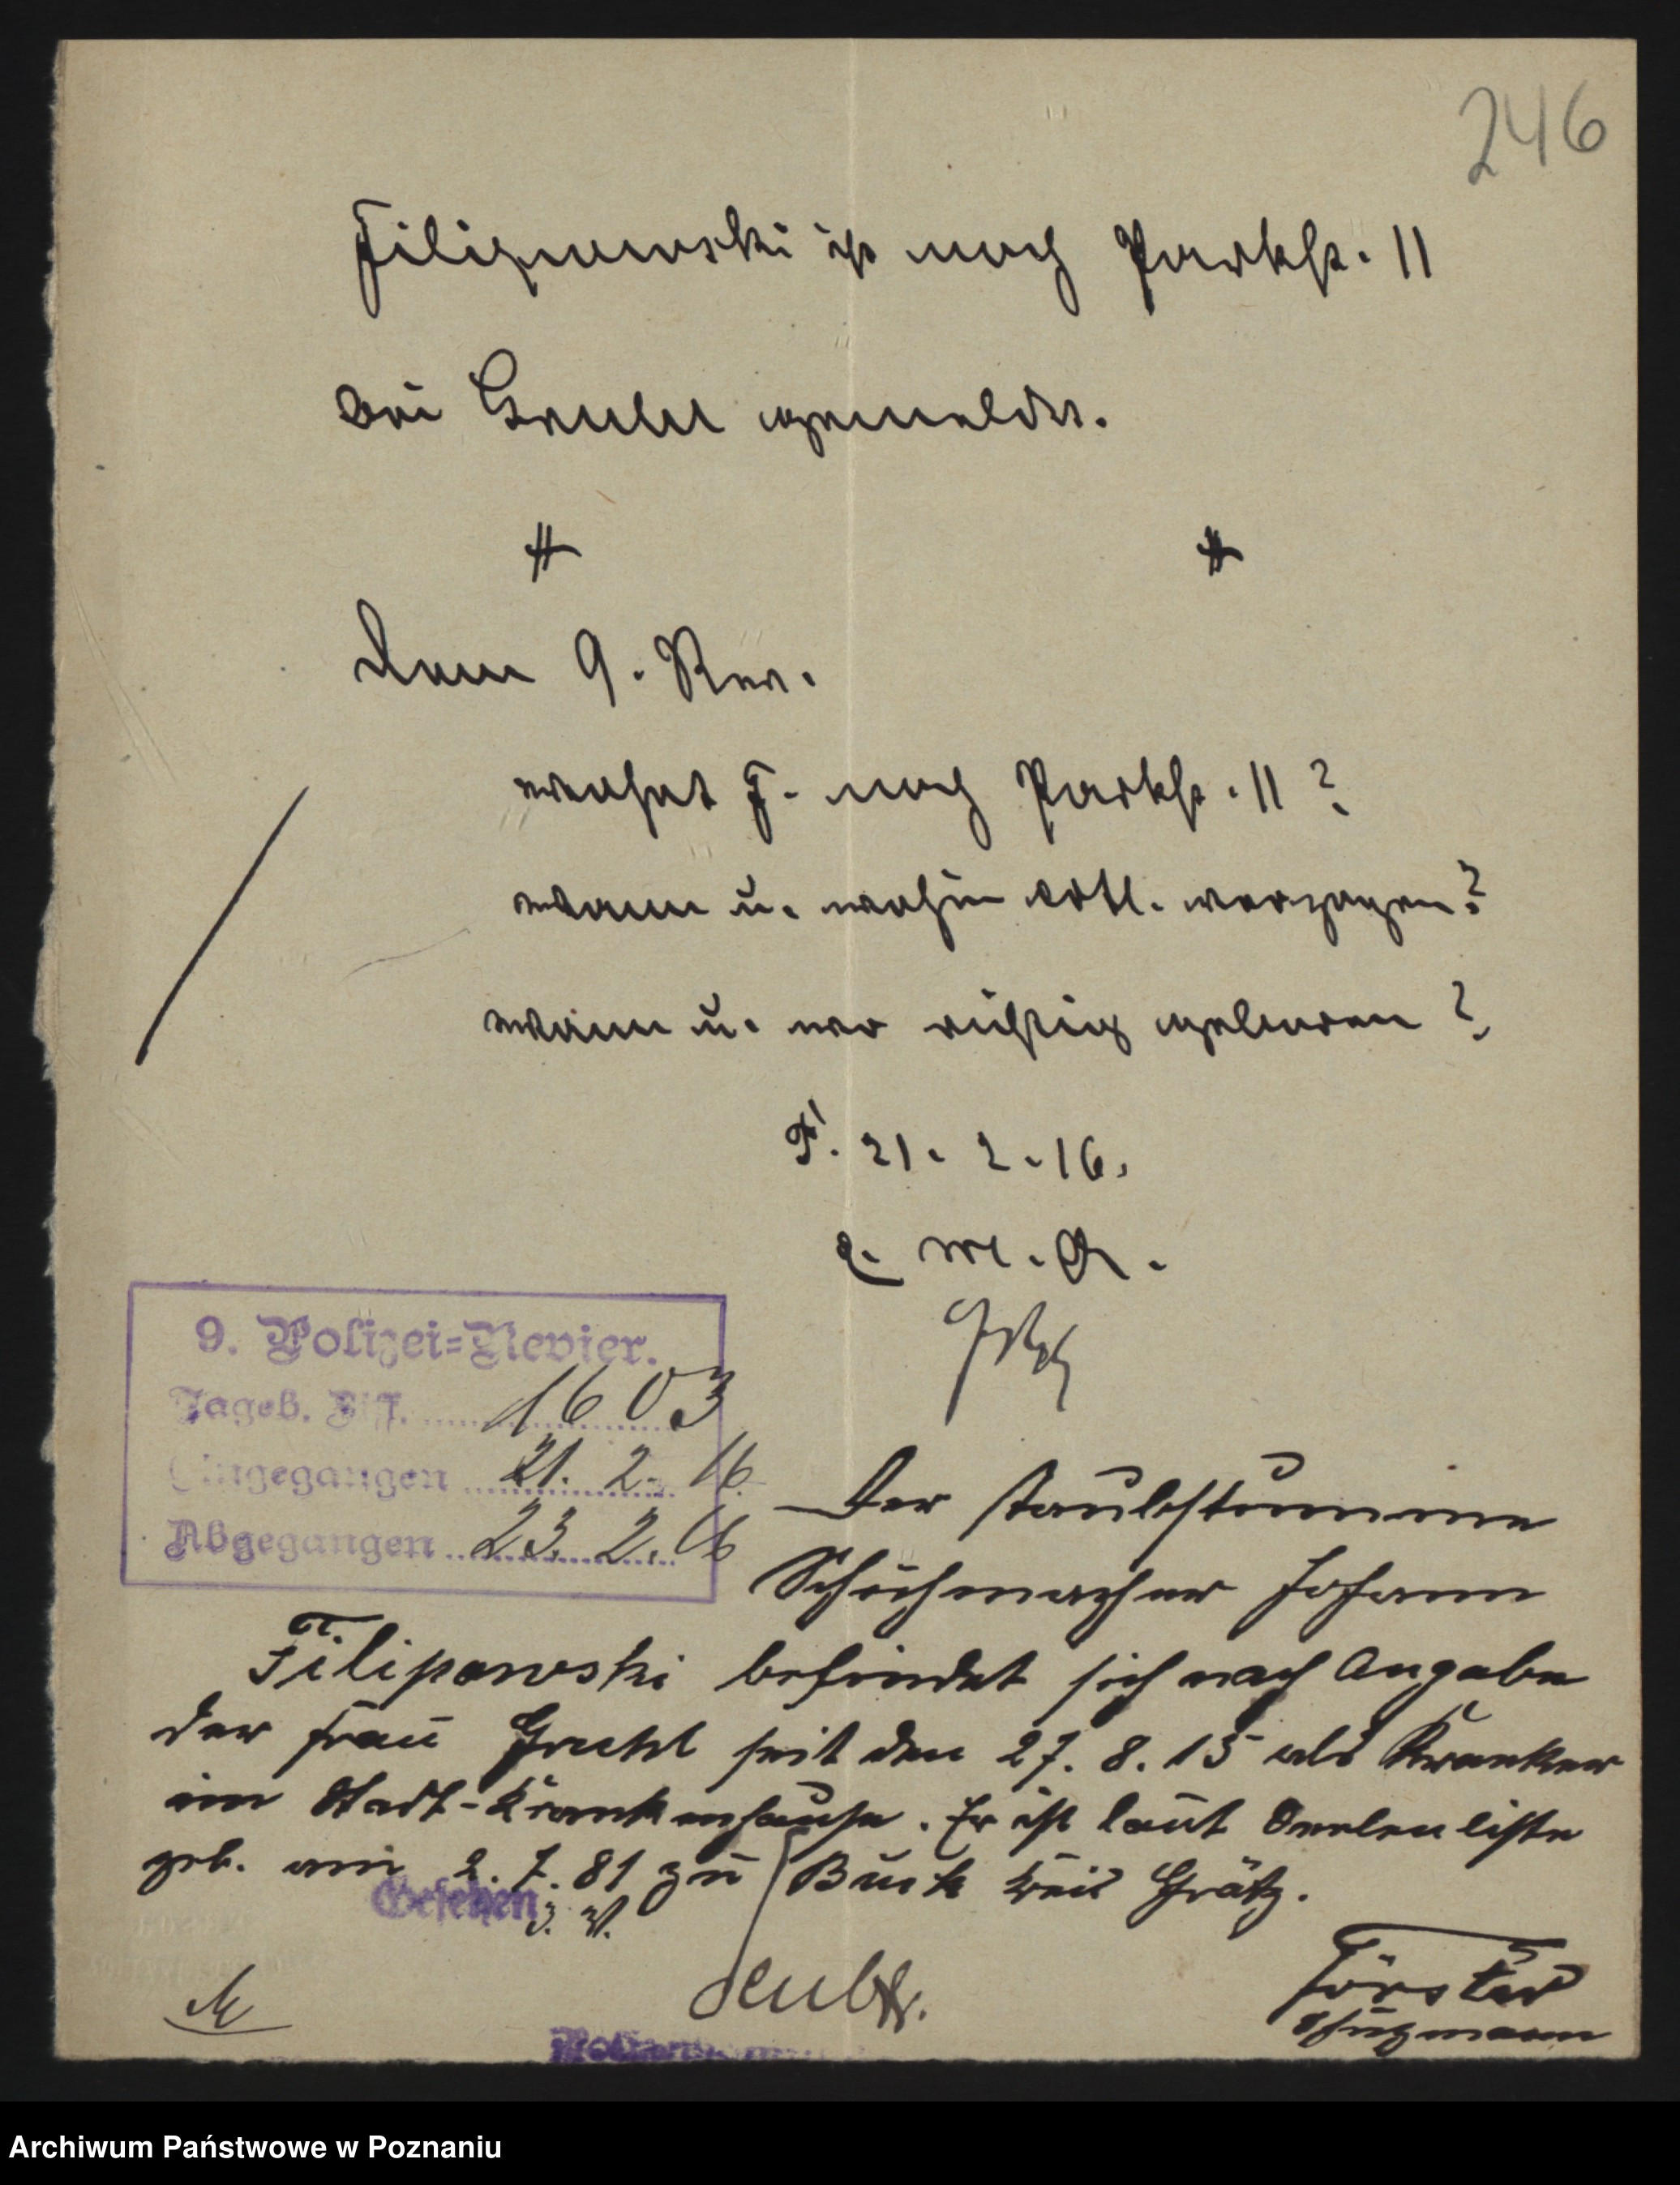 246
Filipowski ist noch Parkstr. 11
bei Gruhl gemeldet.
Dem 9. Rev.
wohnt F. noch Parkstr. 11?
wann u. wohin evtl. verzogen?
wann u. wo richtig geboren?
P. 21. 2. 16.
E. M. A.
9. Polizei-Revier.
Tageb. Nr. 1603
Eingegangen 21. 2. 16.
Abgegangen 23. 2. 16
Der taubstumme
Schuhmacher Johann
Filipowski befindet sich nach Angabe
der Frau Gruhl seit den 27. 8. 15 als Kranker
im Stadt-Krankenhause. Er ist laut Seelenliste
geb. am 2. 7. 81 zu Buck Kreis Grätz.
Gesehen
J. V.
Förster
Schutzmann
Archiwum Państwowe w Poznaniu